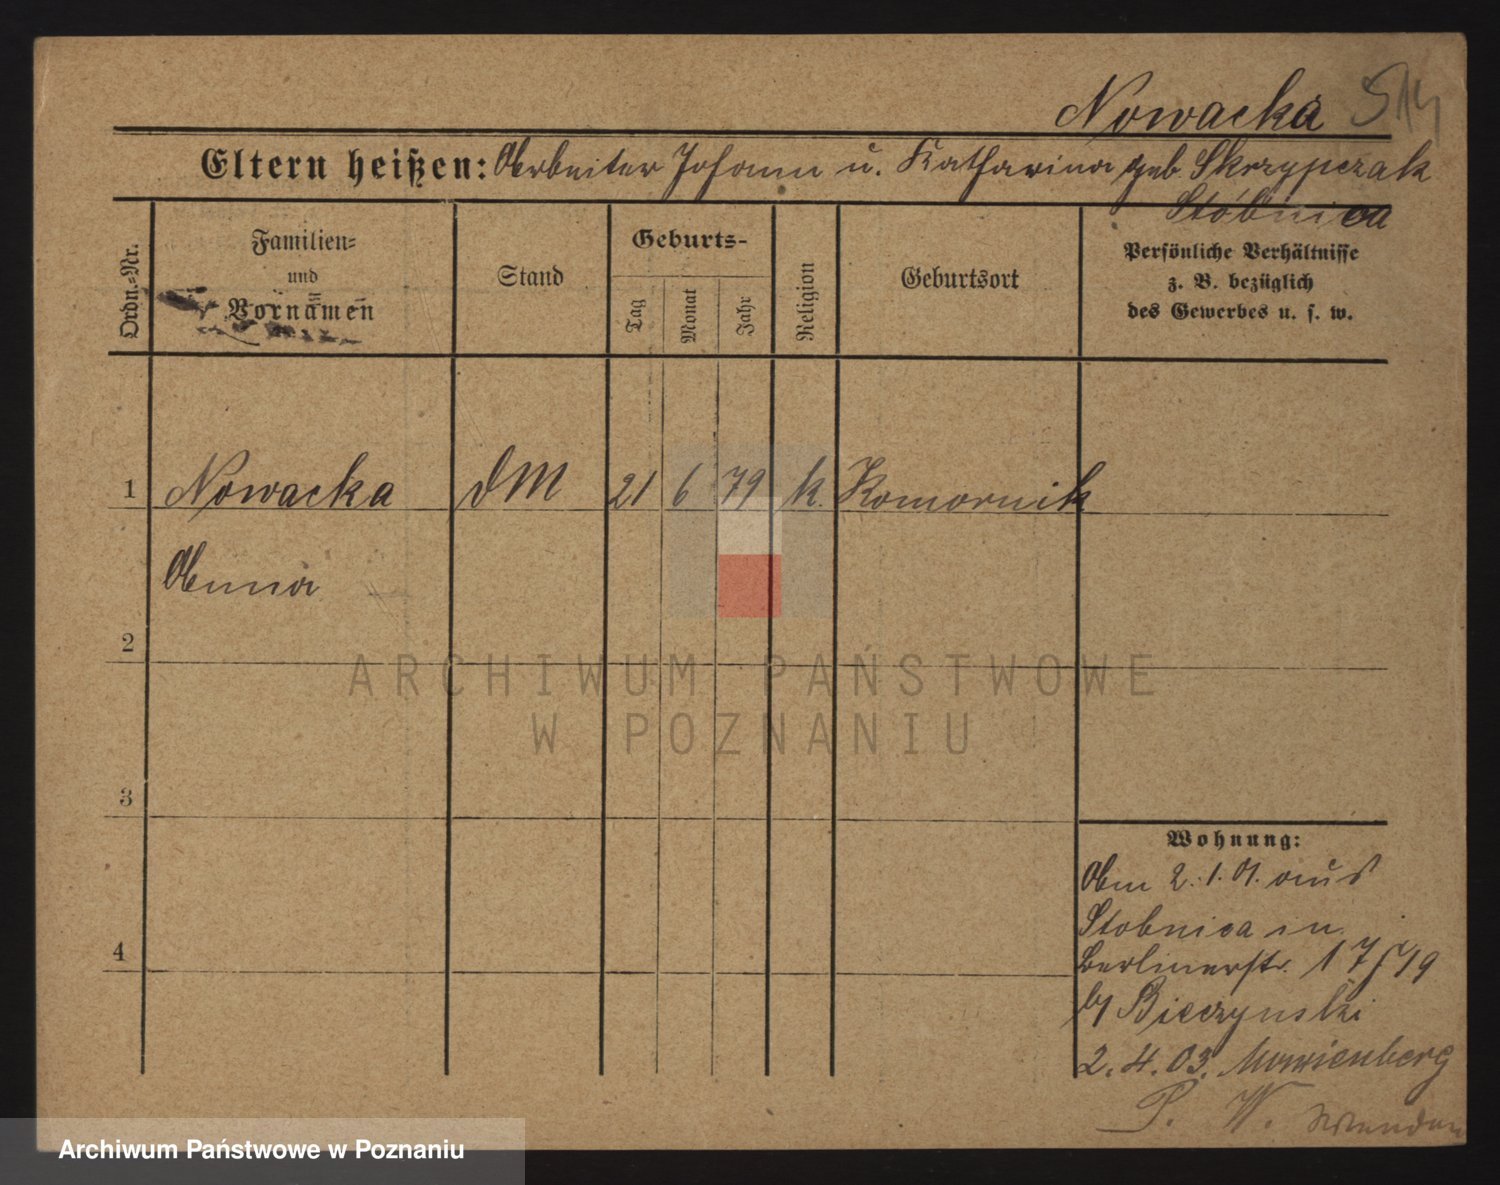 Nowacka 514
Eltern heißen: Arbeiter Johann u. Katharina geb. Skrzypczak
Stobnica
Ordn.-Nr.
Familien-
und
Vornamen
Stand
Geburts-
Tag
Monat
Jahr
Religion
Geburtsort
Persönliche Verhältnisse
z. B. bezüglich
des Gewerbes u. s. w.
1 Nowacka DM 21 6 79 k. Komornik
Anna
2
3
4
Wohnung:
Am 2.1.01. aus
Stobnica in
Berlinerstr. 17
by Bieczynski
2.4.03. Marienberg
P. W.
ARCHIWUM PAŃSTWOWE
W POZNANIU
Archiwum Państwowe w Poznaniu